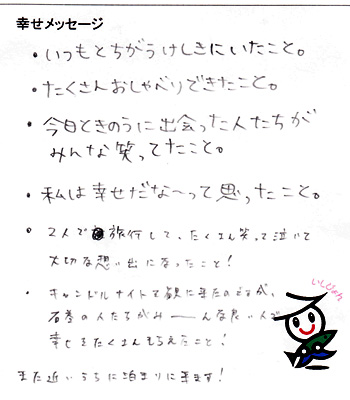 幸せメッセージ
・いつもとちがうけしきにいたこと。
・たくさんおしゃべりできたこと。
・今日ときのうに出会った人たちが
みんな笑ってたこと。
・私は幸せだな〜って思ったこと。
・2人で旅行して、たくさん笑って泣いて
大切な想い出になったこと!
・キャンドルナイトで観に来たのですが、
石巻の人たちがみーーんな良い人で
幸せをたくさんもらえたこと!
また近いうちに泊まりに来ます!
いしぴょん